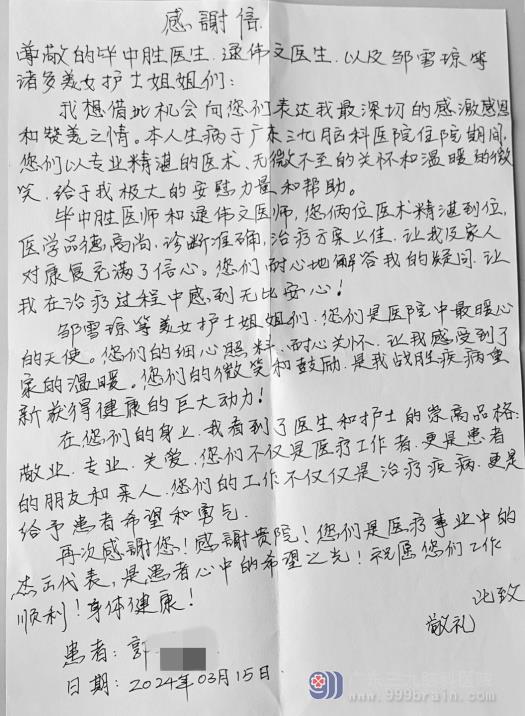 感謝信
尊敬的毕中胜医生、逯伟文医生、以及邹雪琼等
诸多美女护士姐姐们:
我想借此机会向您们表达我最深切的感激感恩
和赞美之情。本人生病于广东三九脑科医院住院期间,
您们以专业精湛的医术、无微不至的关怀和温暖的微
笑、给于我极大的安慰力量和帮助。
毕中胜医师和逯伟文医师,您俩位医术精湛到位,
医学品德高尚,诊断准确,治疗方案上佳,让我及家人
对康复充满了信心。您们耐心地解答我的疑问、让
我在治疗过程中感到无比安心!
邹雪琼等美女护士姐姐们、您们是医院中最暖心
的天使。您们的细心照料、耐心关怀、让我感受到了
家的温暖。您们的微笑和鼓励、是我战胜疾病重
新获得健康的巨大动力!
在您们的身上、我看到了医生和护士的崇高品格:
敬业、专业、关爱、您们不仅是医疗工作者、更是患者
的朋友和亲人、您们的工作不仅仅是治疗疾病、更是
给予患者希望和勇气.
再次感謝您!感謝贵院!您们是医疗事业中的
杰出代表,是患者心中的希望之光!祝愿您们工作
顺利!身体健康!
此致
敬礼
患者:郭
日期:2024年03月15日.
www.999brain.com